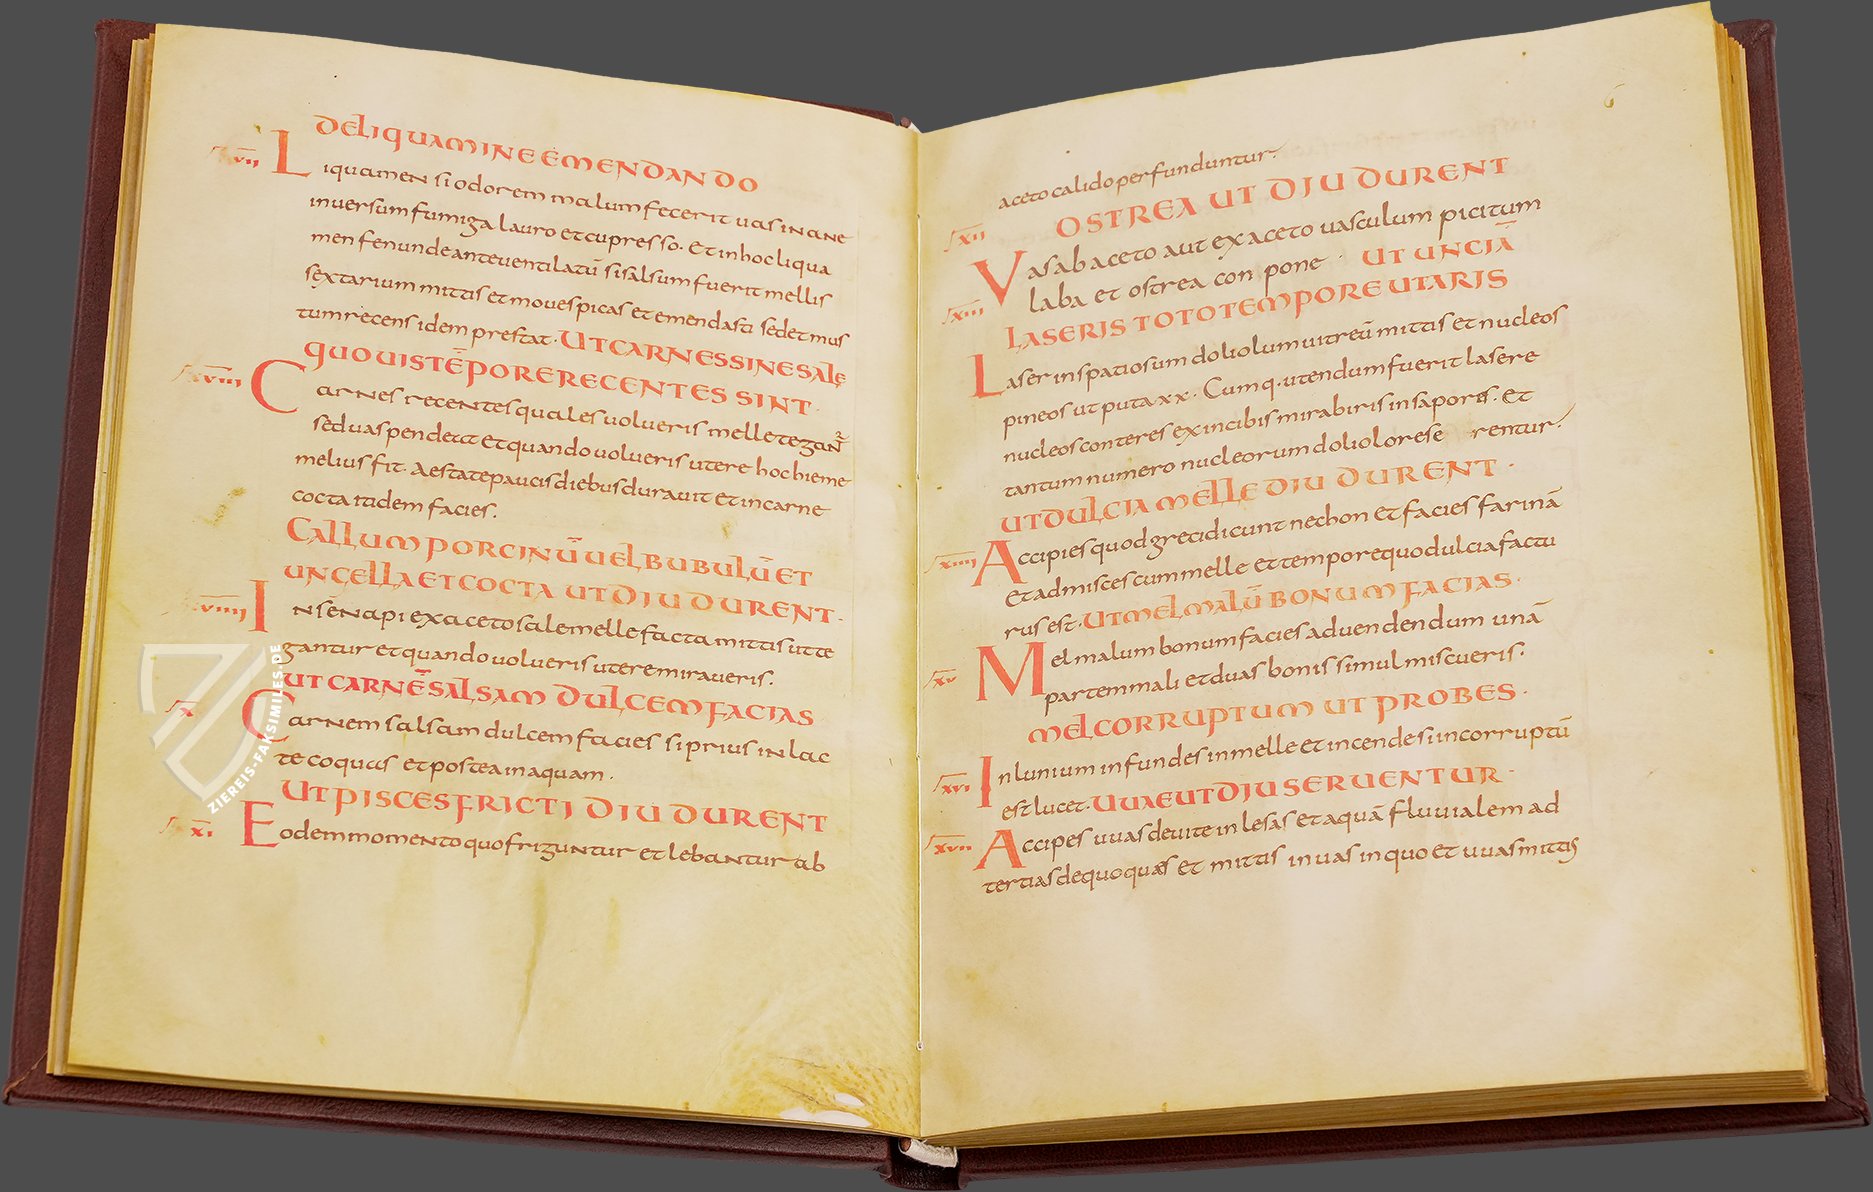 DELIQUAMINE EMENDANDO
vii Liquamen si odorem malum fecerit uas inane
inuersum fumiga lauro et cupresso. Et in hoc liqua
men fenunde ante uentilatū si salsum fuerit mellis
sextarium mittis et moues picas et emendasti sed et mus
tum recens idem prestat. UT CARNES SINE SALE
QUO UIS TĒPORE RECENTES SINT.
viii Carnes recentes quales uolueris melle tegant̄
sed uas pendeat et quando uolueris utere hoc hieme
melius fit. Aestate paucis diebus durauit et in carne
cocta itidem facies.
CALLUM PORCINŪ UEL BUBULŪ ET
UNCELLA ET COCTA UT DIU DURENT.
viiii In senapi ex aceto sale melle facta mittis ut te
gantur et quando uolueris utere miraueris.
UT CARNĒ SALSAM DULCEM FACIAS
x Carnem salsam dulcem facies si prius in lac
te coquas et postea in aquam.
UT PISCES FRICTI DIU DURENT
xi Eodem momento quo friguntur et lebantur ab
ZIEREIS-FAKSIMILES.DE
6
aceto calido perfunduntur.
xii OSTREA UT DIU DURENT
Vas ab aceto aut ex aceto uasculum picitum
laba et ostrea con pone. UT UNCIĀ
xiii LASERIS TOTO TEMPORE UTARIS
Laser in spatiosum doliolum uitreū mittis et nucleos
pineos ut puta xx. Cumq. utendum fuerit lasere
nucleos conteres ex in cibis mirabiris in sapores. Et
tantum numero nucleorum doliolo rese rentur.
UT DULCIA MELLE DIU DURENT.
xiiii Accipies quod greci dicunt nechon et facies farinā
et admisces cum melle et tempore quo dulcia factu
rus est. UT MEL MALŪ BONUM FACIAS.
xv Mel malum bonum facies ad uendendum unā
partem mali et duas bonis simul miscueris.
MEL CORRUPTUM UT PROBES.
xvi In lunium infundes in melle et incende si incorruptū
est lucet. UUAE UT DIU SERUENTUR.
xvii Accipes uuas de uite inlesas et aquā fluuialem ad
tertias dequoquas et mittis in uas in quo et uuas mittis